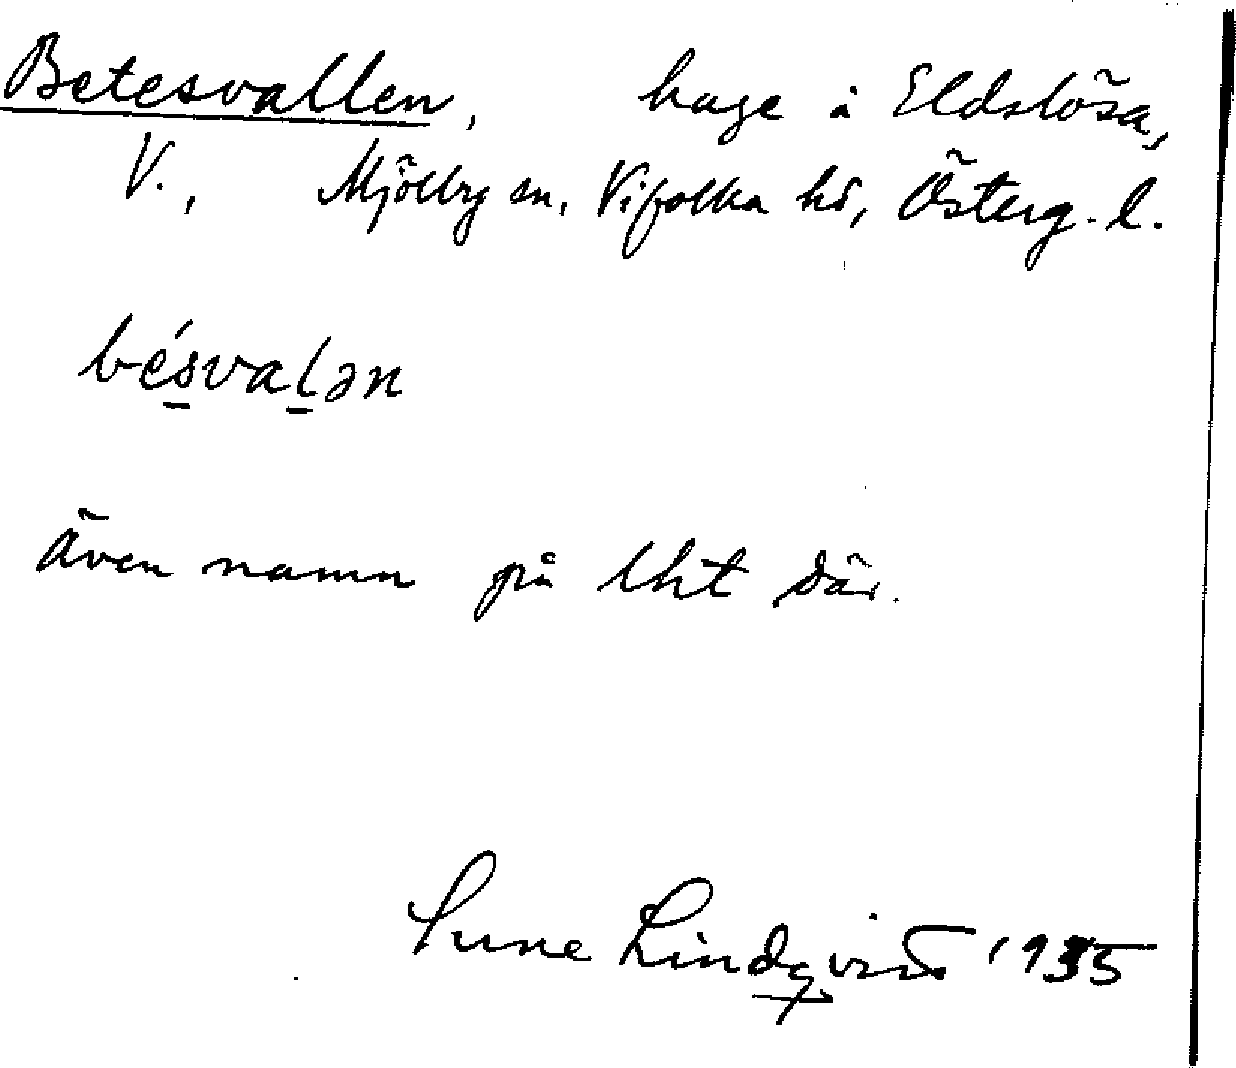 Betesvallen, hage å Eldslösa,
V., Mjölby sn, Vifolka hd, Österg. l.
bésvalən
även namn på lht där.
Sune Lindqvist 1935